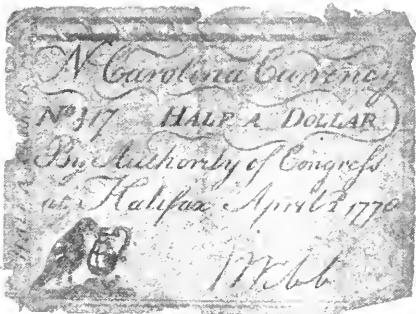 N Carolina Currency
No 317 HALF A DOLLAR
By Authority of Congress
at Halifax April 2 1776